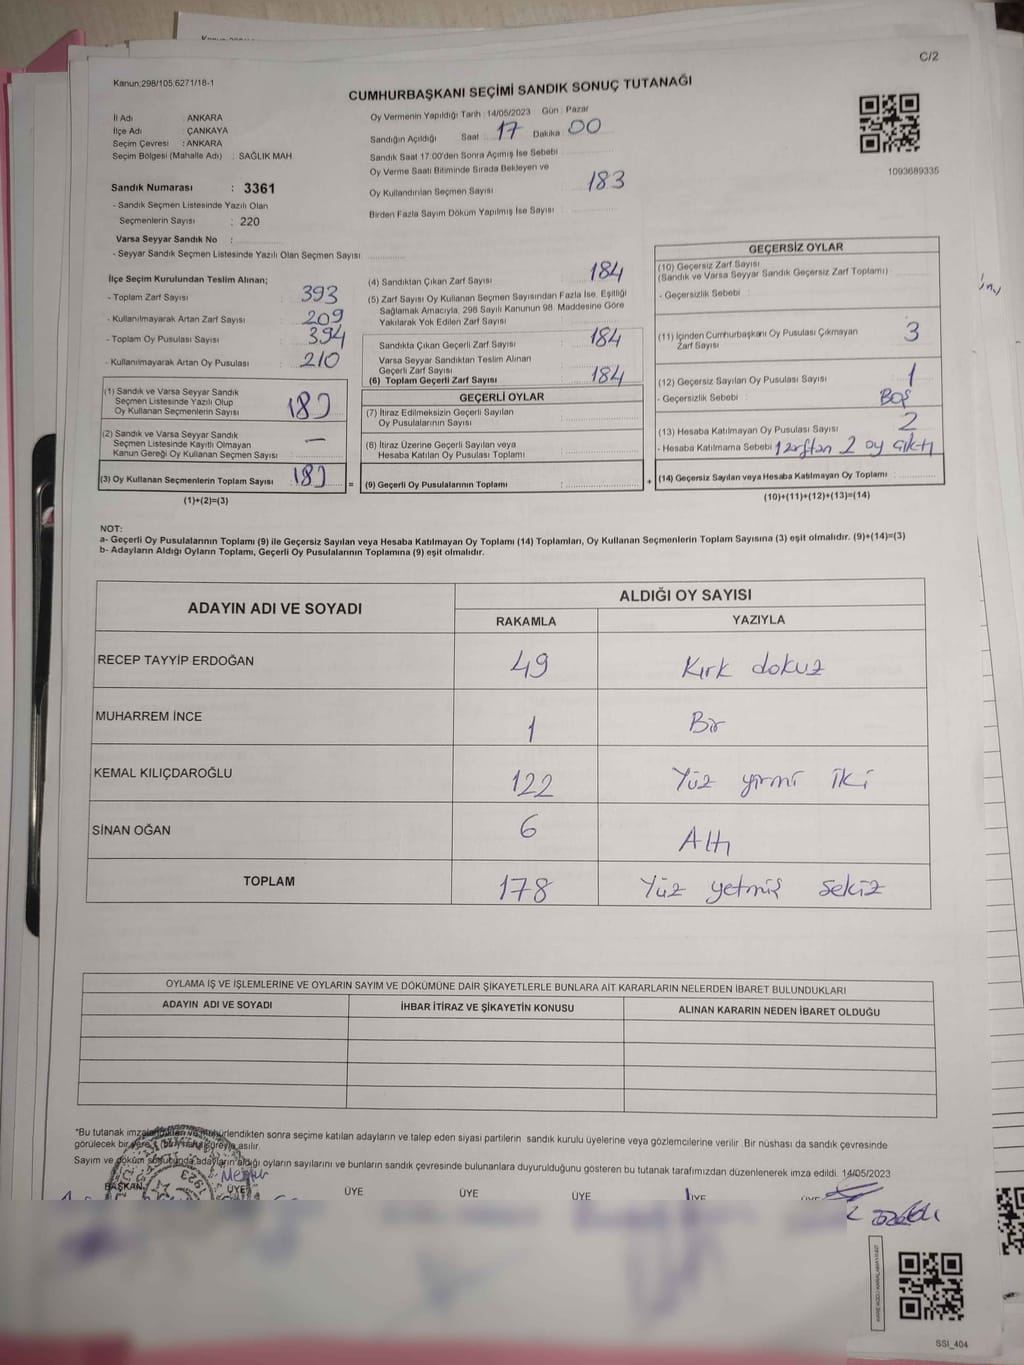 C/2
Kanun:298/105.6271/18-1
CUMHURBAŞKANI SEÇİMİ SANDIK SONUÇ TUTANAĞI
İl Adı : ANKARA
İlçe Adı : ÇANKAYA
Seçim Çevresi : ANKARA
Seçim Bölgesi (Mahalle Adı) : SAĞLIK MAH
Oy Vermenin Yapıldığı Tarih : 14/05/2023 Gün : Pazar
Sandığın Açıldığı Saat : 17 Dakika : 00
Sandık Saat 17:00'den Sonra Açımış İse Sebebi :
Oy Verme Saati Bitiminde Sırada Bekleyen ve
Oy Kullandırılan Seçmen Sayısı : 183
Birden Fazla Sayım Döküm Yapılmış İse Sayısı :
1093689335
Sandık Numarası : 3361
- Sandık Seçmen Listesinde Yazılı Olan
Seçmenlerin Sayısı : 220
Varsa Seyyar Sandık No :
- Seyyar Sandık Seçmen Listesinde Yazılı Olan Seçmen Sayısı
İlçe Seçim Kurulundan Teslim Alınan;
- Toplam Zarf Sayısı : 393
- Kullanılmayarak Artan Zarf Sayısı : 209
- Toplam Oy Pusulası Sayısı : 394
- Kullanılmayarak Artan Oy Pusulası : 210
(1) Sandık ve Varsa Seyyar Sandık
Seçmen Listesinde Yazılı Olup
Oy Kullanan Seçmenlerin Sayısı : 183
(2) Sandık ve Varsa Seyyar Sandık
Seçmen Listesinde Kayıtlı Olmayan
Kanun Gereği Oy Kullanan Seçmen Sayısı : —
(3) Oy Kullanan Seçmenlerin Toplam Sayısı : 183
(1)+(2)=(3)
(4) Sandıktan Çıkan Zarf Sayısı : 184
(5) Zarf Sayısı Oy Kullanan Seçmen Sayısından Fazla İse, Eşitliği
Sağlamak Amacıyla, 298 Sayılı Kanunun 98. Maddesine Göre
Yakılarak Yok Edilen Zarf Sayısı :
Sandıkta Çıkan Geçerli Zarf Sayısı : 184
Varsa Seyyar Sandıktan Teslim Alınan
Geçerli Zarf Sayısı :
(6) Toplam Geçerli Zarf Sayısı : 184
GEÇERLİ OYLAR
(7) İtiraz Edilmeksizin Geçerli Sayılan
Oy Pusulalarının Sayısı :
(8) İtiraz Üzerine Geçerli Sayılan veya
Hesaba Katılan Oy Pusulası Toplamı :
= (9) Geçerli Oy Pusulalarının Toplamı : +
GEÇERSİZ OYLAR
(10) Geçersiz Zarf Sayısı
(Sandık ve Varsa Seyyar Sandık Geçersiz Zarf Toplamı) :
- Geçersizlik Sebebi :
(11) İçinden Cumhurbaşkanı Oy Pusulası Çıkmayan
Zarf Sayısı : 3
(12) Geçersiz Sayılan Oy Pusulası Sayısı : 1
- Geçersizlik Sebebi : BOŞ
(13) Hesaba Katılmayan Oy Pusulası Sayısı : 2
- Hesaba Katılmama Sebebi : 1 zarftan 2 oy çıktı
(14) Geçersiz Sayılan veya Hesaba Katılmayan Oy Toplamı :
(10)+(11)+(12)+(13)=(14)
NOT:
a- Geçerli Oy Pusulalarının Toplamı (9) ile Geçersiz Sayılan veya Hesaba Katılmayan Oy Toplamı (14) Toplamları, Oy Kullanan Seçmenlerin Toplam Sayısına (3) eşit olmalıdır. (9)+(14)=(3)
b- Adayların Aldığı Oyların Toplamı, Geçerli Oy Pusulalarının Toplamına (9) eşit olmalıdır.
ADAYIN ADI VE SOYADI
ALDIĞI OY SAYISI
RAKAMLA YAZIYLA
RECEP TAYYİP ERDOĞAN 49 Kırk dokuz
MUHARREM İNCE 1 Bir
KEMAL KILIÇDAROĞLU 122 Yüz yirmi iki
SİNAN OĞAN 6 Altı
TOPLAM 178 Yüz yetmiş sekiz
OYLAMA İŞ VE İŞLEMLERİNE VE OYLARIN SAYIM VE DÖKÜMÜNE DAİR ŞİKAYETLERLE BUNLARA AİT KARARLARIN NELERDEN İBARET BULUNDUKLARI
ADAYIN ADI VE SOYADI İHBAR İTİRAZ VE ŞİKAYETİN KONUSU ALINAN KARARIN NEDEN İBARET OLDUĞU
*Bu tutanak imzalandıktan ve mühürlendikten sonra seçime katılan adayların ve talep eden siyasi partilerin sandık kurulu üyelerine veya gözlemcilerine verilir. Bir nüshası da sandık çevresinde
görülecek bir yere 1 (bir) hafta süreyle asılır.
Sayım ve döküm sonucunda adayların aldığı oyların sayılarını ve bunların sandık çevresinde bulunanlara duyurulduğunu gösteren bu tutanak tarafımızdan düzenlenerek imza edildi. 14/05/2023
BAŞKAN ÜYE ÜYE ÜYE ÜYE ÜYE
SSI_404